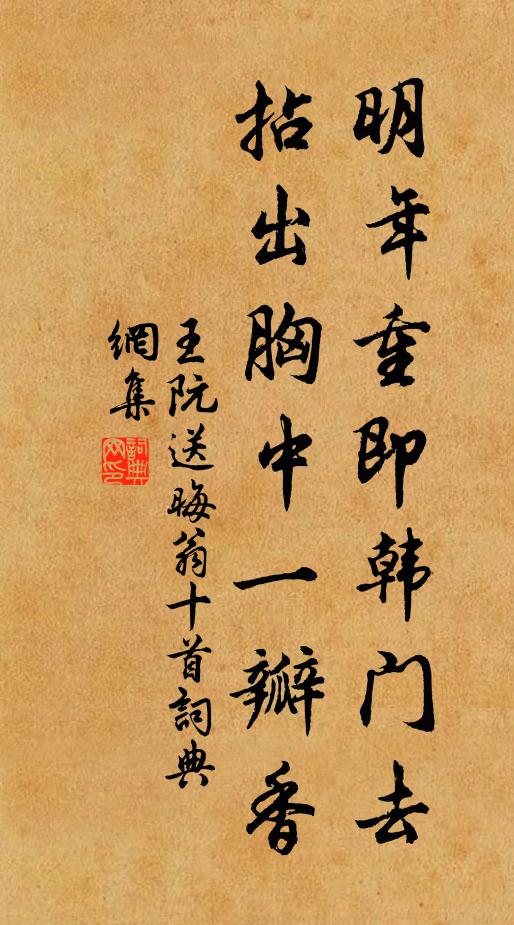 明年重即韩门去
拈出胸中一瓣香
王阮送晦翁十首詞典
網集
詞典
网印